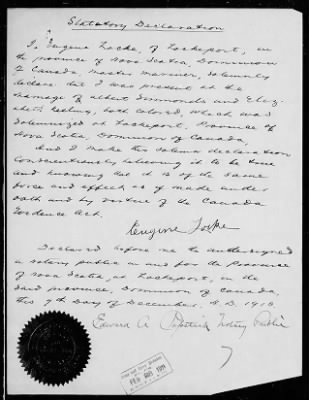 Statutory Declaration
I, Eugene Locke, of Lockeport, in
the province of Nova Scotia, Dominion
of Canada, master mariner, solemnly
declare that I was present at the
marriage of Albert Simmonds and Eliz-
abeth, both colored, which was
solemnized at Lockeport, Province of
Nova Scotia, Dominion of Canada,
And I make this solemn declaration
conscientiously believing it to be true
and knowing that it is of the same
force and effect as if made under
oath and by virtue of the Canada
Evidence Act.
Eugene Locke
Declared before me the undersigned
a notary public in and for the Province
of Nova Scotia, at Lockeport, in the
said province, Dominion of Canada,
this 9th Day of December, A.D. 1918
Edward A. Notary Public
FEB 1921